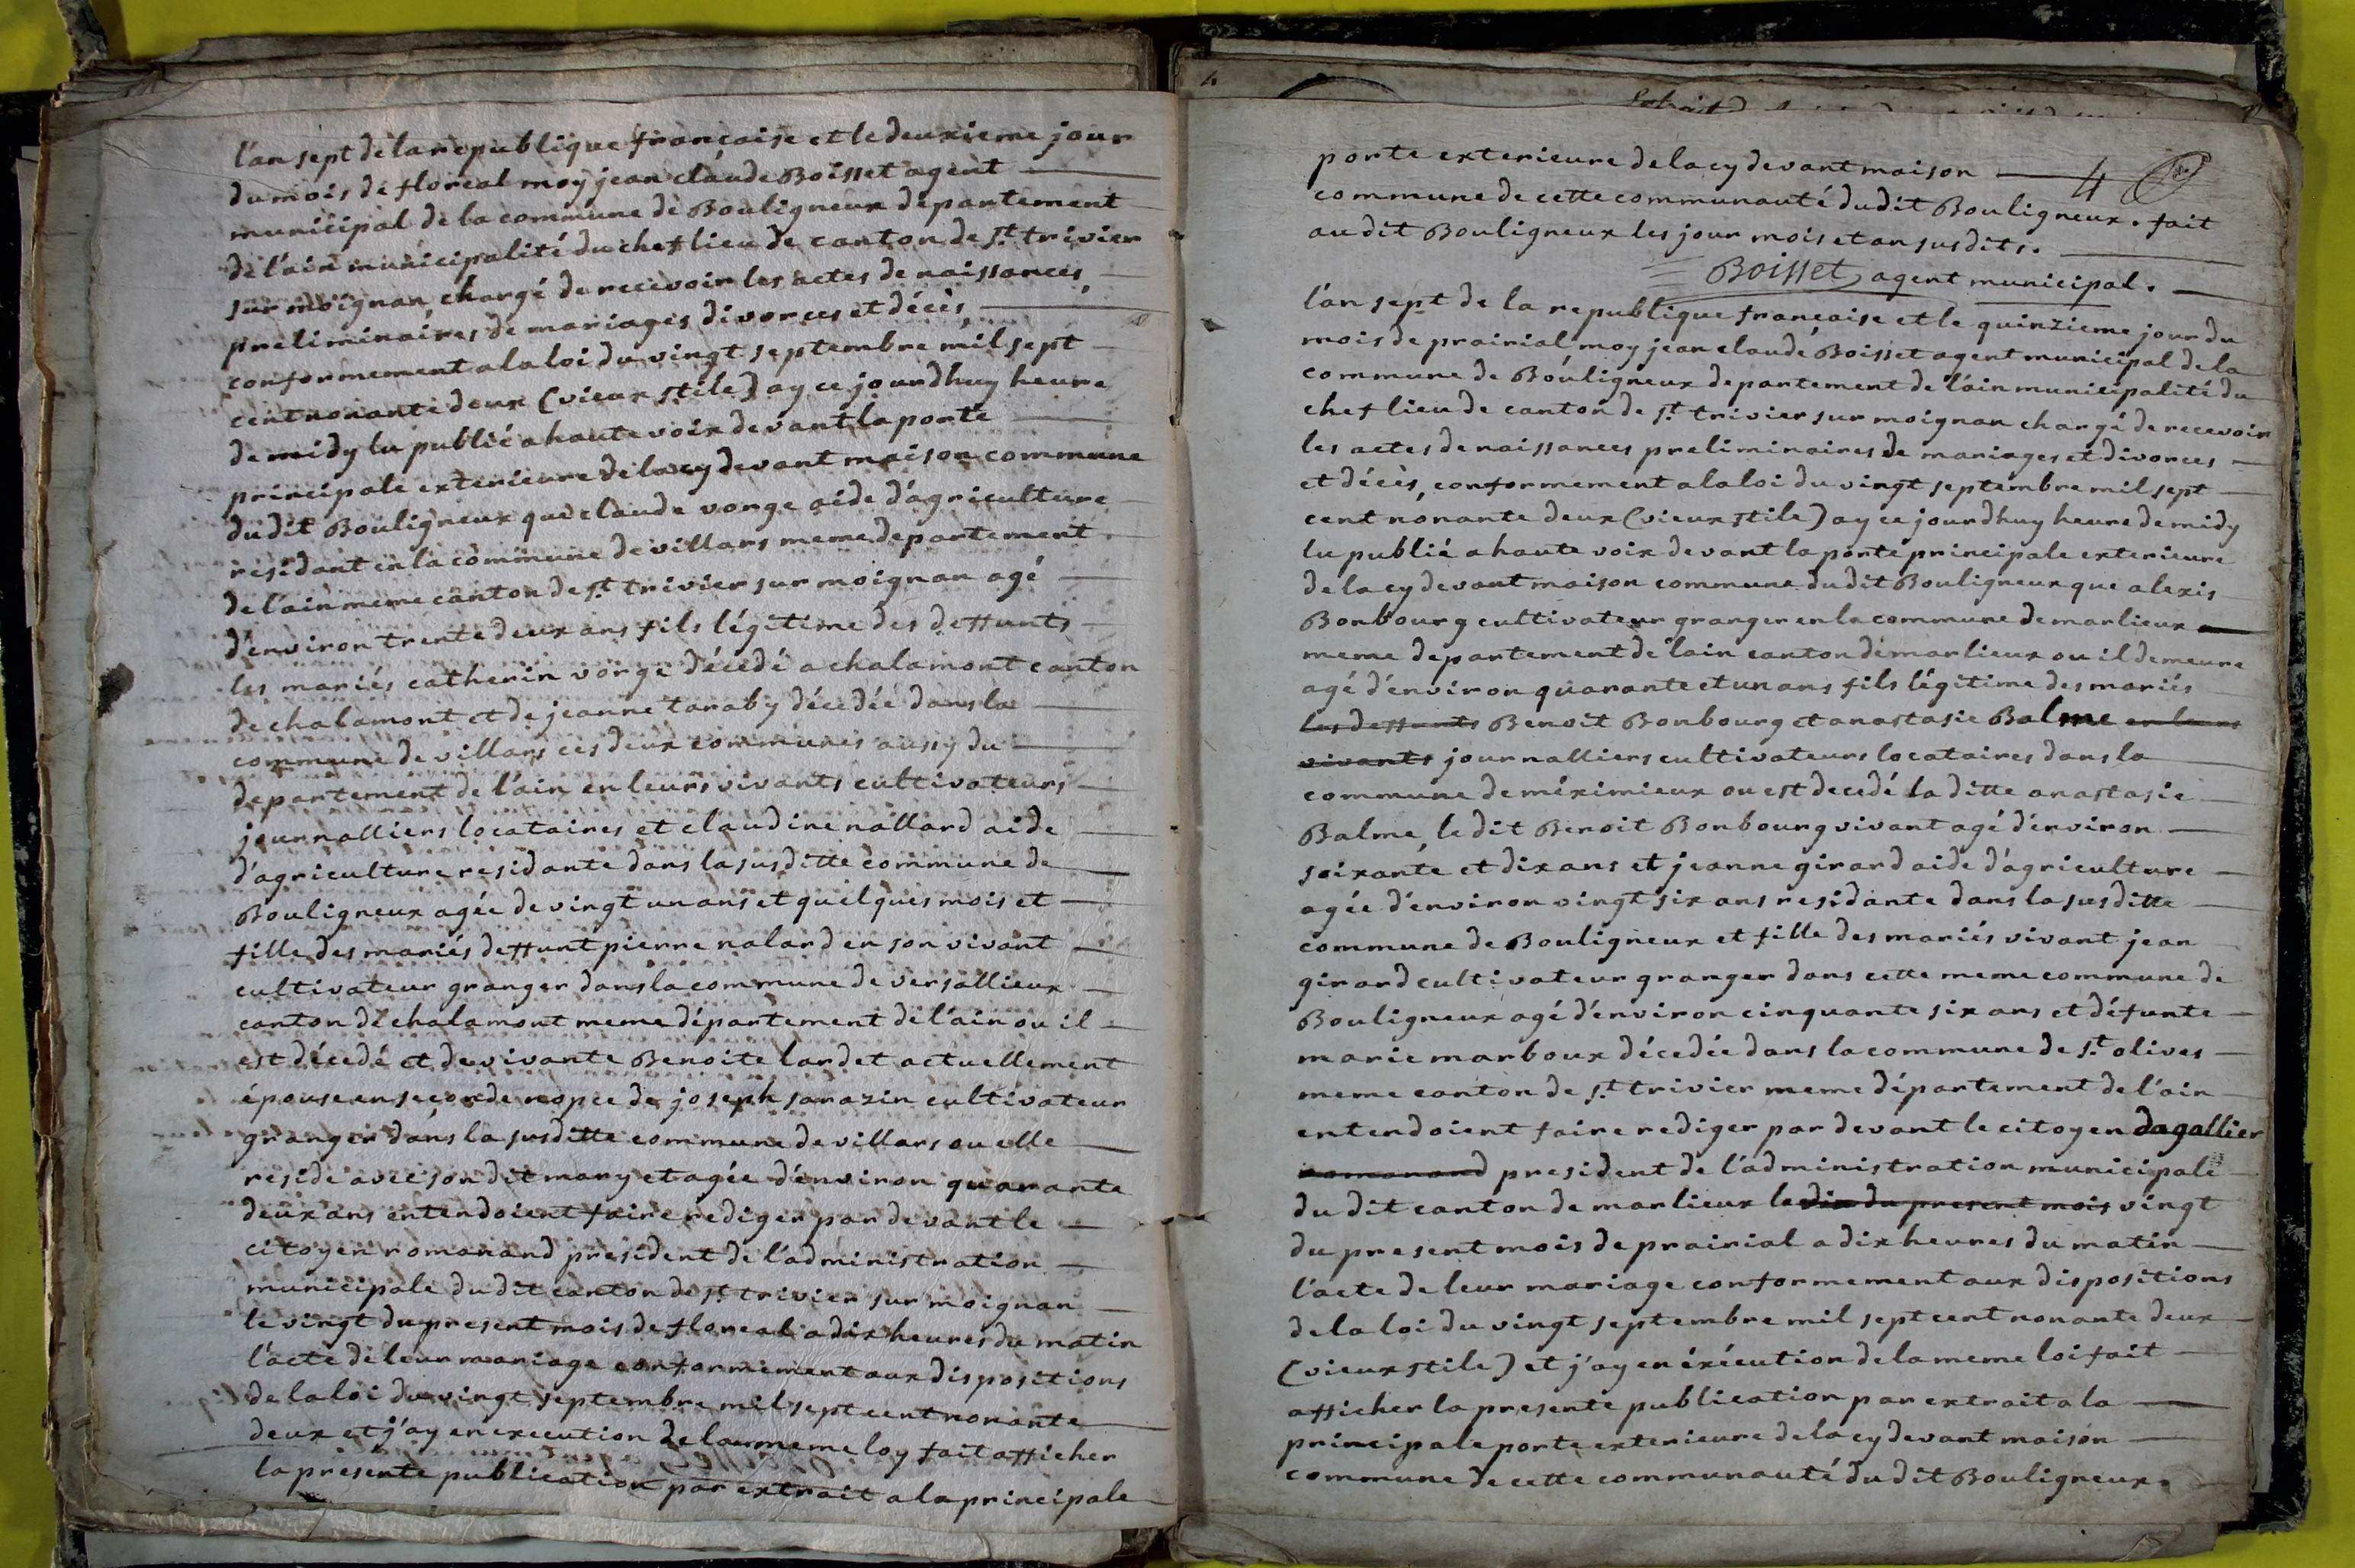 l'an sept de la republique française et le deuxieme jour
du mois de floreal moy jean claude Boisset agent
municipal de la commune de Bouligneux departement
de l'ain municipalité du chef lieu de canton de st trivier
sur moignan, chargé de recevoir les actes de naissances,
preliminaires de mariages divorces et décès,
conformement a la loi du vingt septembre mil sept
cent nonante deux (vieux stile) ay ce jourdhuy heure
de midy lu publié a haute voix devant la porte
principale exterieure de la cy devant maison commune
dudit Bouligneux que claude vorge aide d'agriculture
residant en la commune de villars meme departement
de l'ain meme canton de st trivier sur moignan agé
d'environ trente deux ans fils légitime des deffunts
les mariés catherin vorge décedé a chalamont canton
de chalamont et de jeanne taraby décedée dans la
commune de villars ces deux communes aussy du
departement de l'ain en leurs vivants cultivateurs
journalliers locataires et claudine nallard aide
d'agriculture residante dans la susditte commune de
Bouligneux agée de vingt un ans et quelques mois et
fille des mariés deffunt pierre nalard en son vivant
cultivateur granger dans la commune de versallieux
canton de chalamont meme département de l'ain ou il
est décedé et de vivante Benoite lardet actuellement
épouse en seconde nopce de joseph sarazin cultivateur
granger dans la susditte commune de villars ou elle
reside avec son dit mary et agée d'environ quarante
deux ans entendoient faire rediger par devant le
citoyen romanand president de l'administration
municipale du dit canton de st trivier sur moignan
le vingt du present mois de floreal a dix heures du matin
l'acte de leur mariage conformement aux dispositions
de la loi du vingt septembre mil sept cent nonante
deux et j'ay en execution de la meme loy fait afficher
la presente publication par extrait a la principale
4
porte exterieure de la cy devant maison
commune de cette communauté dudit Bouligneux. fait
au dit Bouligneux les jour mois et an susdits.
Boisset agent municipal.
l'an sept de la republique française et le quinzieme jour du
mois de prairial, moy jean claude Boisset agent municipal de la
commune de Bouligneux departement de l'ain municipalité du
chef lieu de canton de st trivier sur moignan chargé de recevoir
les actes de naissances preliminaires de mariages et divorces
et décès, conformement a la loi du vingt septembre mil sept
cent nonante deux (vieux stile) ay ce jourdhuy heure de midy
lu publié a haute voix devant la porte principale exterieure
de la cy devant maison commune dudit Bouligneux que alexis
Bonbourg cultivateur granger en la commune de marlieux
meme departement de lain canton de marlieux ou il demeure
agé d'environ quarante et un ans fils légitime des mariés
les deffunts Benoit Bonbourg et anastasie Balme en leurs
vivants journalliers cultivateurs locataires dans la
commune de méximieux ou est decedé la ditte anastasie
Balme, le dit Benoit Bonbourg vivant agé d'environ
soixante et dix ans et jeanne girard aide d'agriculture
agée d'environ vingt six ans residante dans la susditte
commune de Bouligneux et fille des mariés vivant jean
girard cultivateur granger dans cette meme commune de
Bouligneux agé d'environ cinquante six ans et défunte
marie marboux décedée dans la commune de st olives
meme canton de st trivier meme département de l'ain
entendoient faire rediger par devant le citoyen dagallier
romanand president de l'administration municipale
du dit canton de marlieux le dix du present mois vingt
du present mois de prairial a dix heures du matin
l'acte de leur mariage conformement aux dispositions
de la loi du vingt septembre mil sept cent nonante deux
(vieux stile) et j'ay en éxécution de la meme loi fait
afficher la presente publication par extrait a la
principale porte exterieure de la cy devant maison
commune de cette communauté du dit Bouligneux.